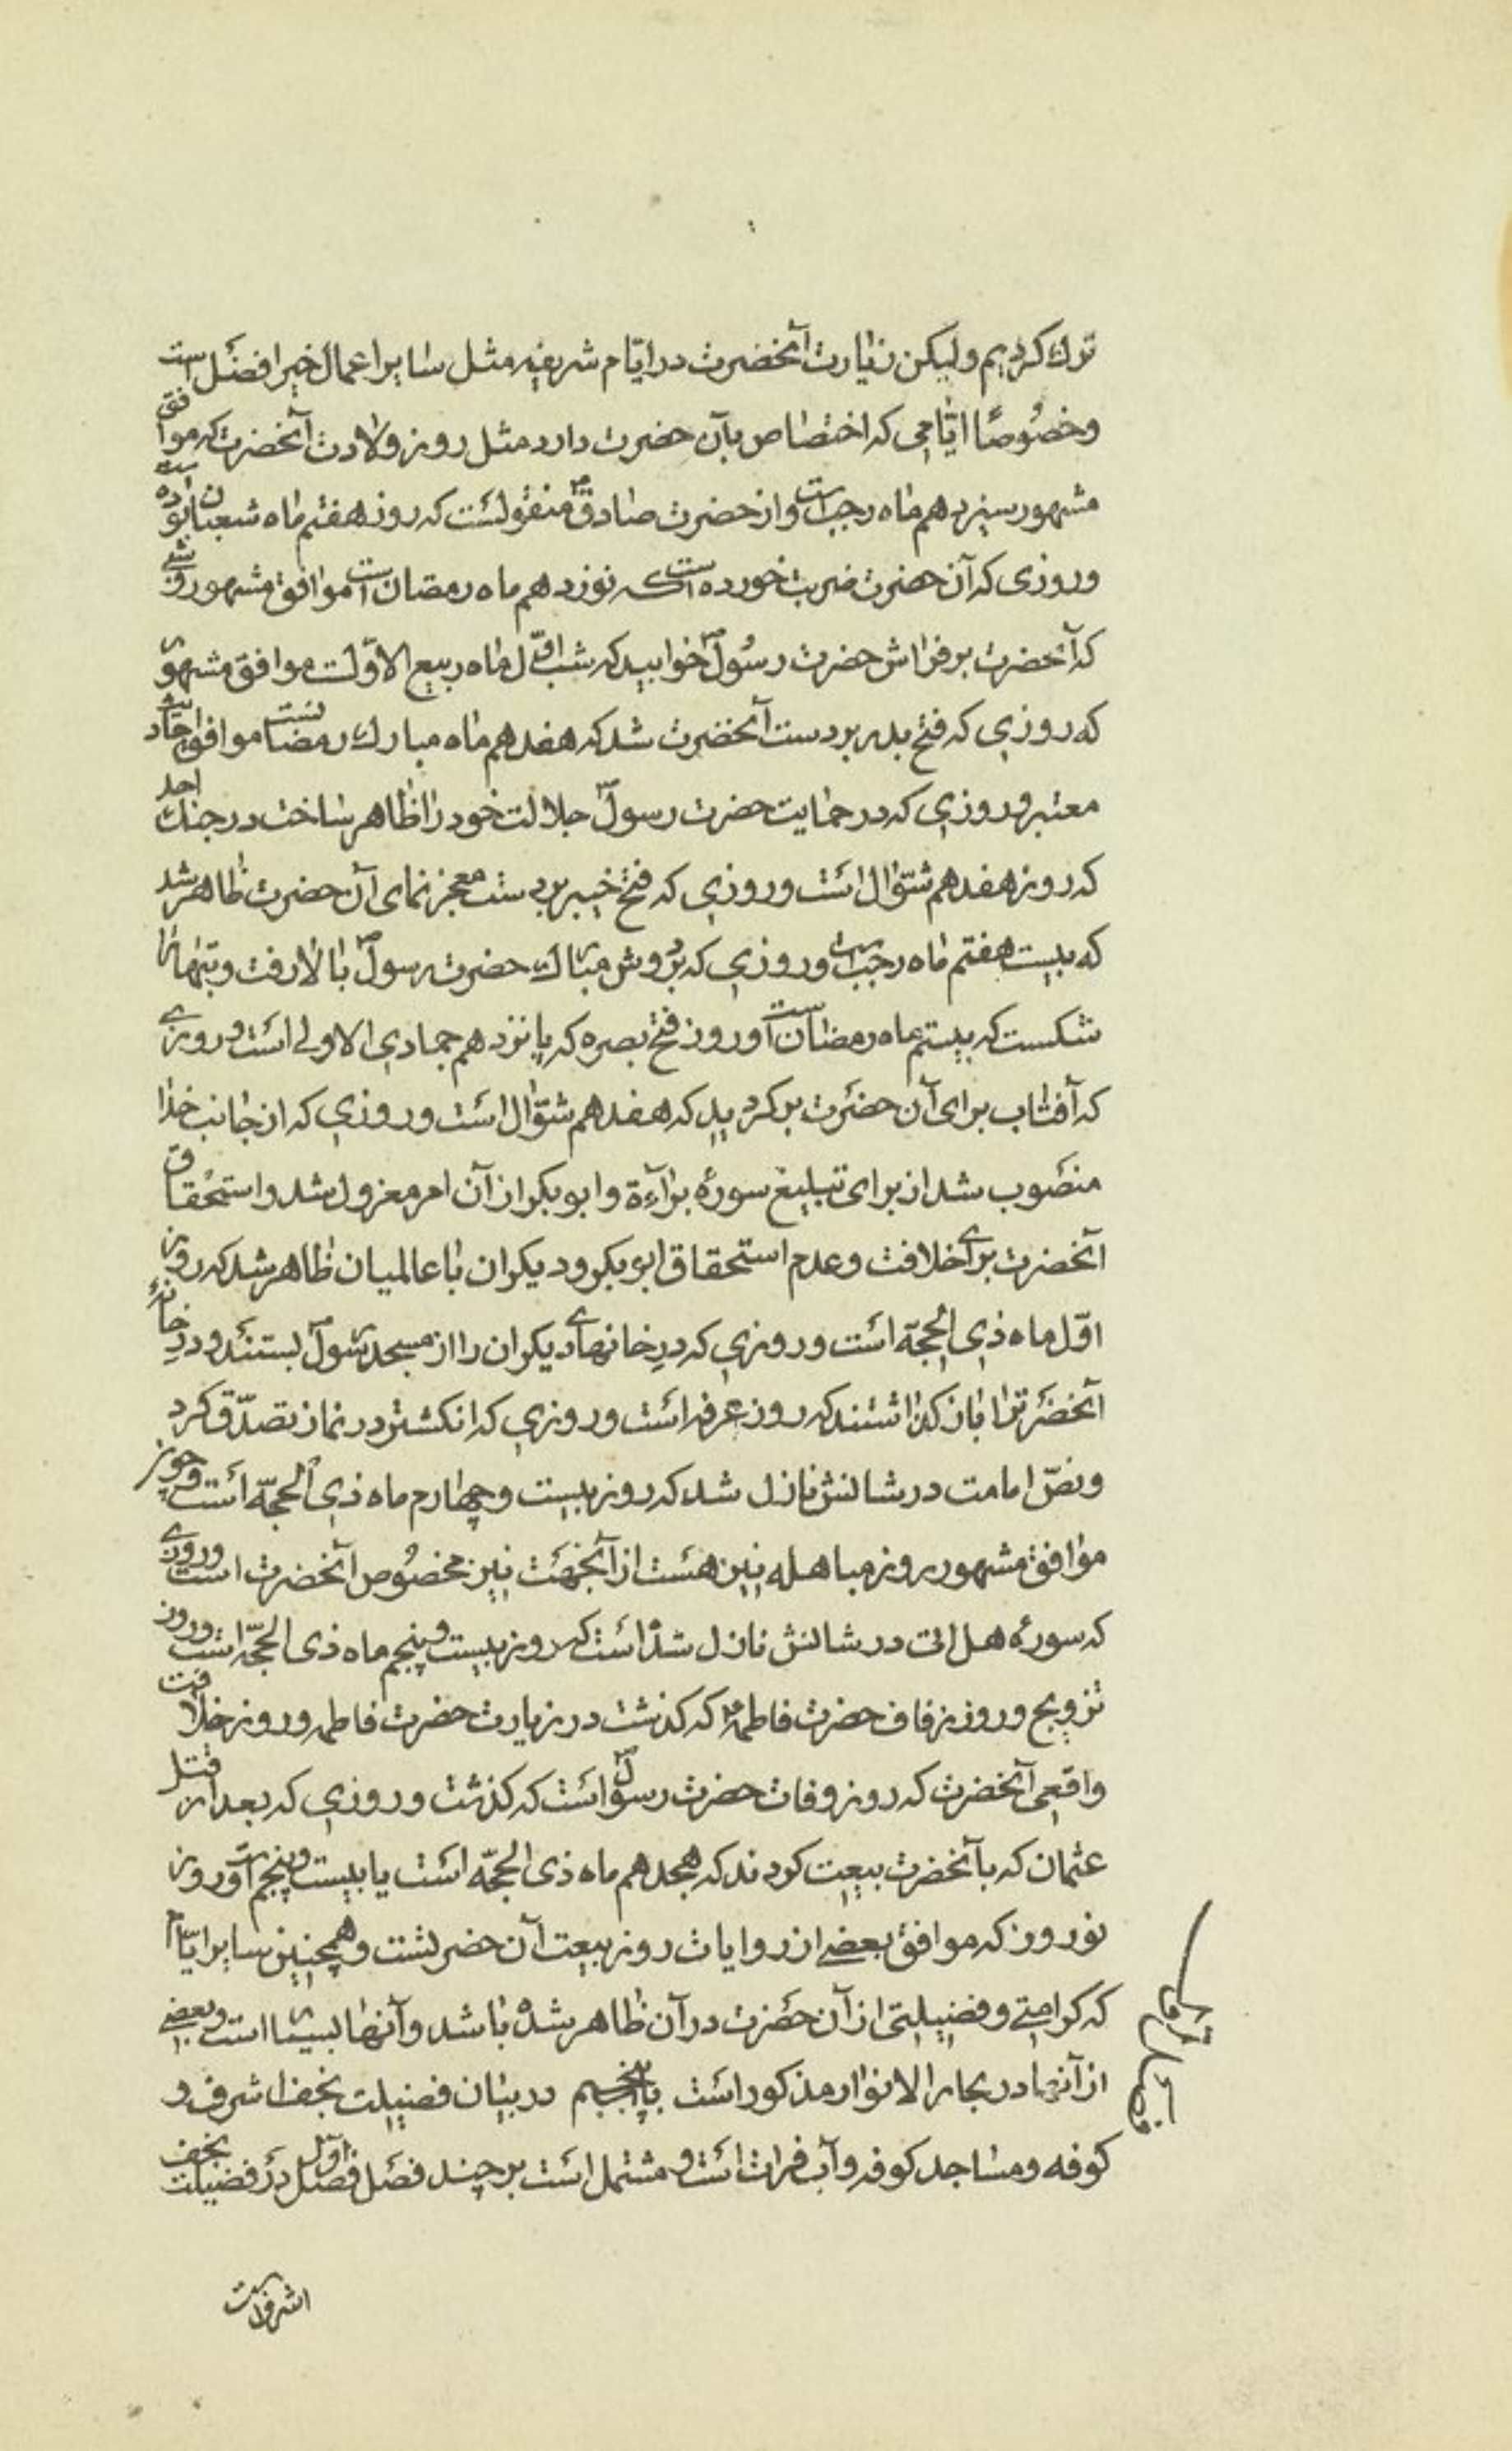 ترك كرديم وليكن زيارت آنحضرت در ايّام شريفه مثل ساير اعمال خير افضل است
وخصُوصًا ايّامى كه اختصاص بآن حضرت دارد مثل روز ولادت آنحضرت كه موافق
مشهور سيزدهم ماه رجب است واز حضرت صادق ع منقولست كه روز هفتم ماه شعبان بوده است
وروزى كه آن حضرت ضربت خورده است كه نوزدهم ماه رمضان است موافق مشهور وشبى
كه آنحضرت بر فراش حضرت رسُول ص خوابيد كه شب اوّل ماه ربيع الاوّلست موافق مشهور
كه روزى كه فتح بدر بر دست آنحضرت شد كه هفدهم ماه مبارك رمضانست موافق احاديث
معتبر وروزى كه در حمايت حضرت رسول ص جلالت خود را ظاهر ساخت در جنك احد
كه روز هفدهم شوّال است وروزى كه فتح خيبر بر دست معجز نماى آن حضرت ظاهر شد
كه بيست هفتم ماه رجب است وروزى كه بر دوش مبارك حضرت رسول ص بالا رفت وبتها را
شكست كه بيستم ماه رمضان است وروز فتح بصره كه پانزدهم جمادى الاولى است وروزى
كه آفتاب براى آن حضرت بر كرديد كه هفدهم شوّال است وروزى كه از جانب خدا
منصُوب شد از براى تبليغ سورهٔ براءة وابو بكر از آن امر معزول شد واستحقاق
آنحضرت براى خلافت وعدم استحقاق ابو بكر وديكران با عالميان ظاهر شد كه روز
اوّل ماه ذى الحجّه است وروزى كه درِ خانهاى ديكران را از مسجد رسول ص بستند ودر خانهٔ
آنحضرت را باز كذاشتند كه روز عرفه است وروزى كه انكشتر در نماز تصدّق كرد
ونصّ امامت در شانش نازل شد كه روز بيست وچهارم ماه ذى الحجّه است وچون
موافق مشهور روز مباهله نيز هست از آنجهت نيز مخصُوص آنحضرت است وروزى
كه سورهٔ هل اتى در شانش نازل شده است كه روز بيست وپنجم ماه ذى الحجّه است وروز
تزويج وروز زفاف حضرت فاطمه ع كه كذشت در زيارت حضرت فاطمه وروز خلافت
واقعى آنحضرت كه روز وفات حضرت رسول ص است كه كذشت وروزى كه بعد از قتل
عثمان كه با آنحضرت بيعت كردند كه هجدهم ماه ذى الحجّه است يا بيست وپنجم است وروز
نوروز كه موافق بعضى از روايات روز بيعت آن حضرتست وهمچنين ساير ايّام
كه كرامتى وفضيلتى از آن حضرت در آن ظاهر شده باشد وآنها بسيار است وبعضى
از آنها در بحار الانوار مذكور است باب پنجم در بيان فضيلت نجف اشرف و
كوفه ومساجد كوفه وآب فرات است ومشتمل است بر چند فصل فصل اوّل در فضيلت نجف
اشرف است